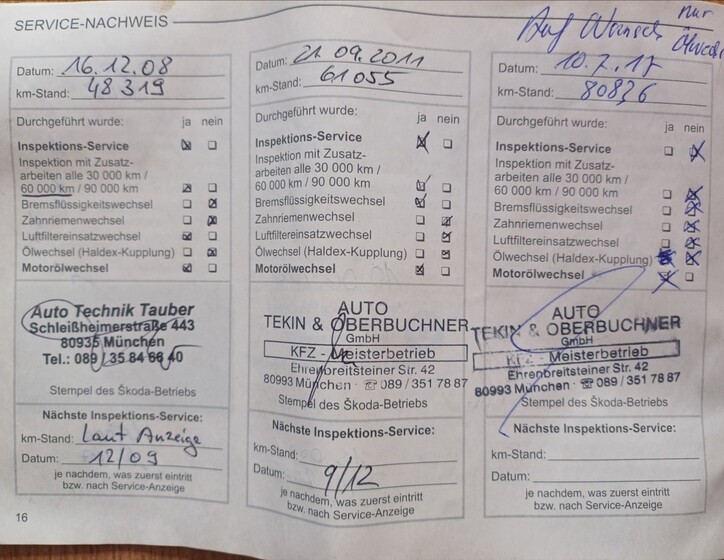 SERVICE-NACHWEIS
Datum: 16.12.08
km-Stand: 48 319
Durchgeführt wurde: ja nein
Inspektions-Service
Inspektion mit Zusatz-
arbeiten alle 30 000 km /
60 000 km / 90 000 km
Bremsflüssigkeitswechsel
Zahnriemenwechsel
Luftfiltereinsatzwechsel
Ölwechsel (Haldex-Kupplung)
Motorölwechsel
Auto Technik Tauber
Schleißheimerstraße 443
80935 München
Tel.: 089 / 35 84 66 40
Stempel des Škoda-Betriebs
Nächste Inspektions-Service:
km-Stand: Laut Anzeige
Datum: 12/09
je nachdem, was zuerst eintritt
bzw. nach Service-Anzeige
16
Datum: 21.09.2011
km-Stand: 61 055
Durchgeführt wurde: ja nein
Inspektions-Service
Inspektion mit Zusatz-
arbeiten alle 30 000 km /
60 000 km / 90 000 km
Bremsflüssigkeitswechsel
Zahnriemenwechsel
Luftfiltereinsatzwechsel
Ölwechsel (Haldex-Kupplung)
Motorölwechsel
AUTO
TEKIN & OBERBUCHNER
GmbH
KFZ - Meisterbetrieb
Ehrenbreitsteiner Str. 42
80993 München · ☏ 089 / 351 78 87
Stempel des Škoda-Betriebs
Nächste Inspektions-Service:
km-Stand:
Datum: 9/12
je nachdem, was zuerst eintritt
bzw. nach Service-Anzeige
Auf Wunsch nur
Datum: 10.7.17
km-Stand: 80836
Durchgeführt wurde: ja nein
Inspektions-Service
Inspektion mit Zusatz-
arbeiten alle 30 000 km /
60 000 km / 90 000 km
Bremsflüssigkeitswechsel
Zahnriemenwechsel
Luftfiltereinsatzwechsel
Ölwechsel (Haldex-Kupplung)
Motorölwechsel
AUTO
TEKIN & OBERBUCHNER
GmbH
KFZ - Meisterbetrieb
Ehrenbreitsteiner Str. 42
80993 München · ☏ 089 / 351 78 87
Stempel des Škoda-Betriebs
Nächste Inspektions-Service:
km-Stand:
Datum:
je nachdem, was zuerst eintritt
bzw. nach Service-Anzeige